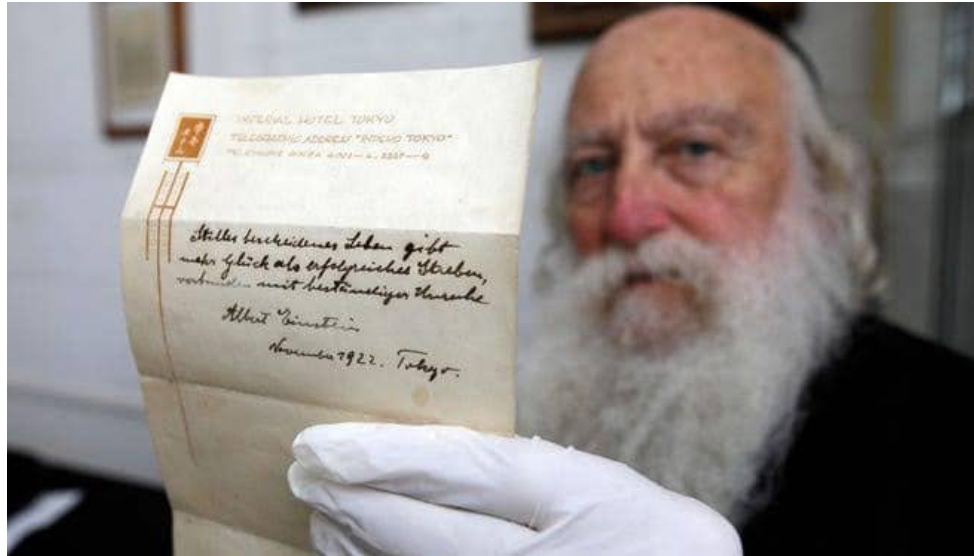 IMPERIAL HOTEL TOKYO
TELEGRAPHIC ADDRESS "IMPHO TOKYO"
Stilles bescheidenes Leben gibt
mehr Glück als erfolgreiches Streben,
verbunden mit beständiger Unruhe
Albert Einstein
November 1922. Tokyo.